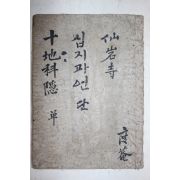 仙岩寺
십지과은 단
十地科隱 單